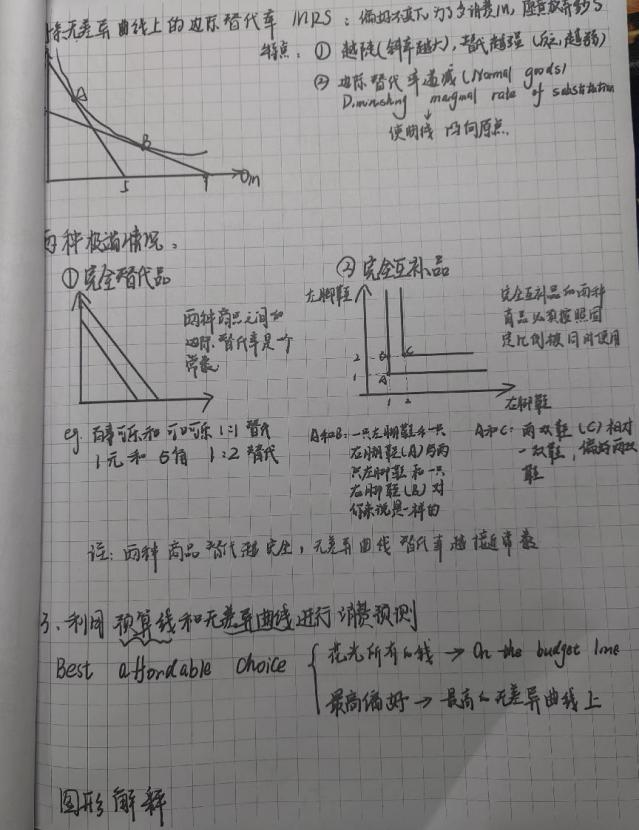 无差异曲线上的边际替代率 MRS：偏好不变下，为了多消费m，愿意放弃多少S
特点：① 越陡(斜率越大)，替代越强
② 边际替代率递减 (Normal goods)
Diminishing marginal rate of substitution
↓
使曲线凹向原点
A
B
5
m
两种极端情况：
① 完全替代品
两种商品之间的
边际替代率是一个
常数
eg. 百事可乐和可口可乐 1:1 替代
1元和5角 1:2 替代
② 完全互补品
左脚鞋
2
1
B
C
A
1 2
右脚鞋
完全互补品和两种
商品必须按照固
定比例被同时使用
A和B：一只左脚鞋和一只
右脚鞋(A)与两
只左脚鞋和一只
右脚鞋(B)对
你来说是一样的
A和C：两双鞋(C)相对
一双鞋，偏好两双
鞋
注：两种商品替代越完全，无差异曲线替代率越接近常数
3、利用预算线和无差异曲线进行消费预测
Best affordable choice
花光所有的钱 → On the budget line
最高偏好 → 最高的无差异曲线上
图形解释